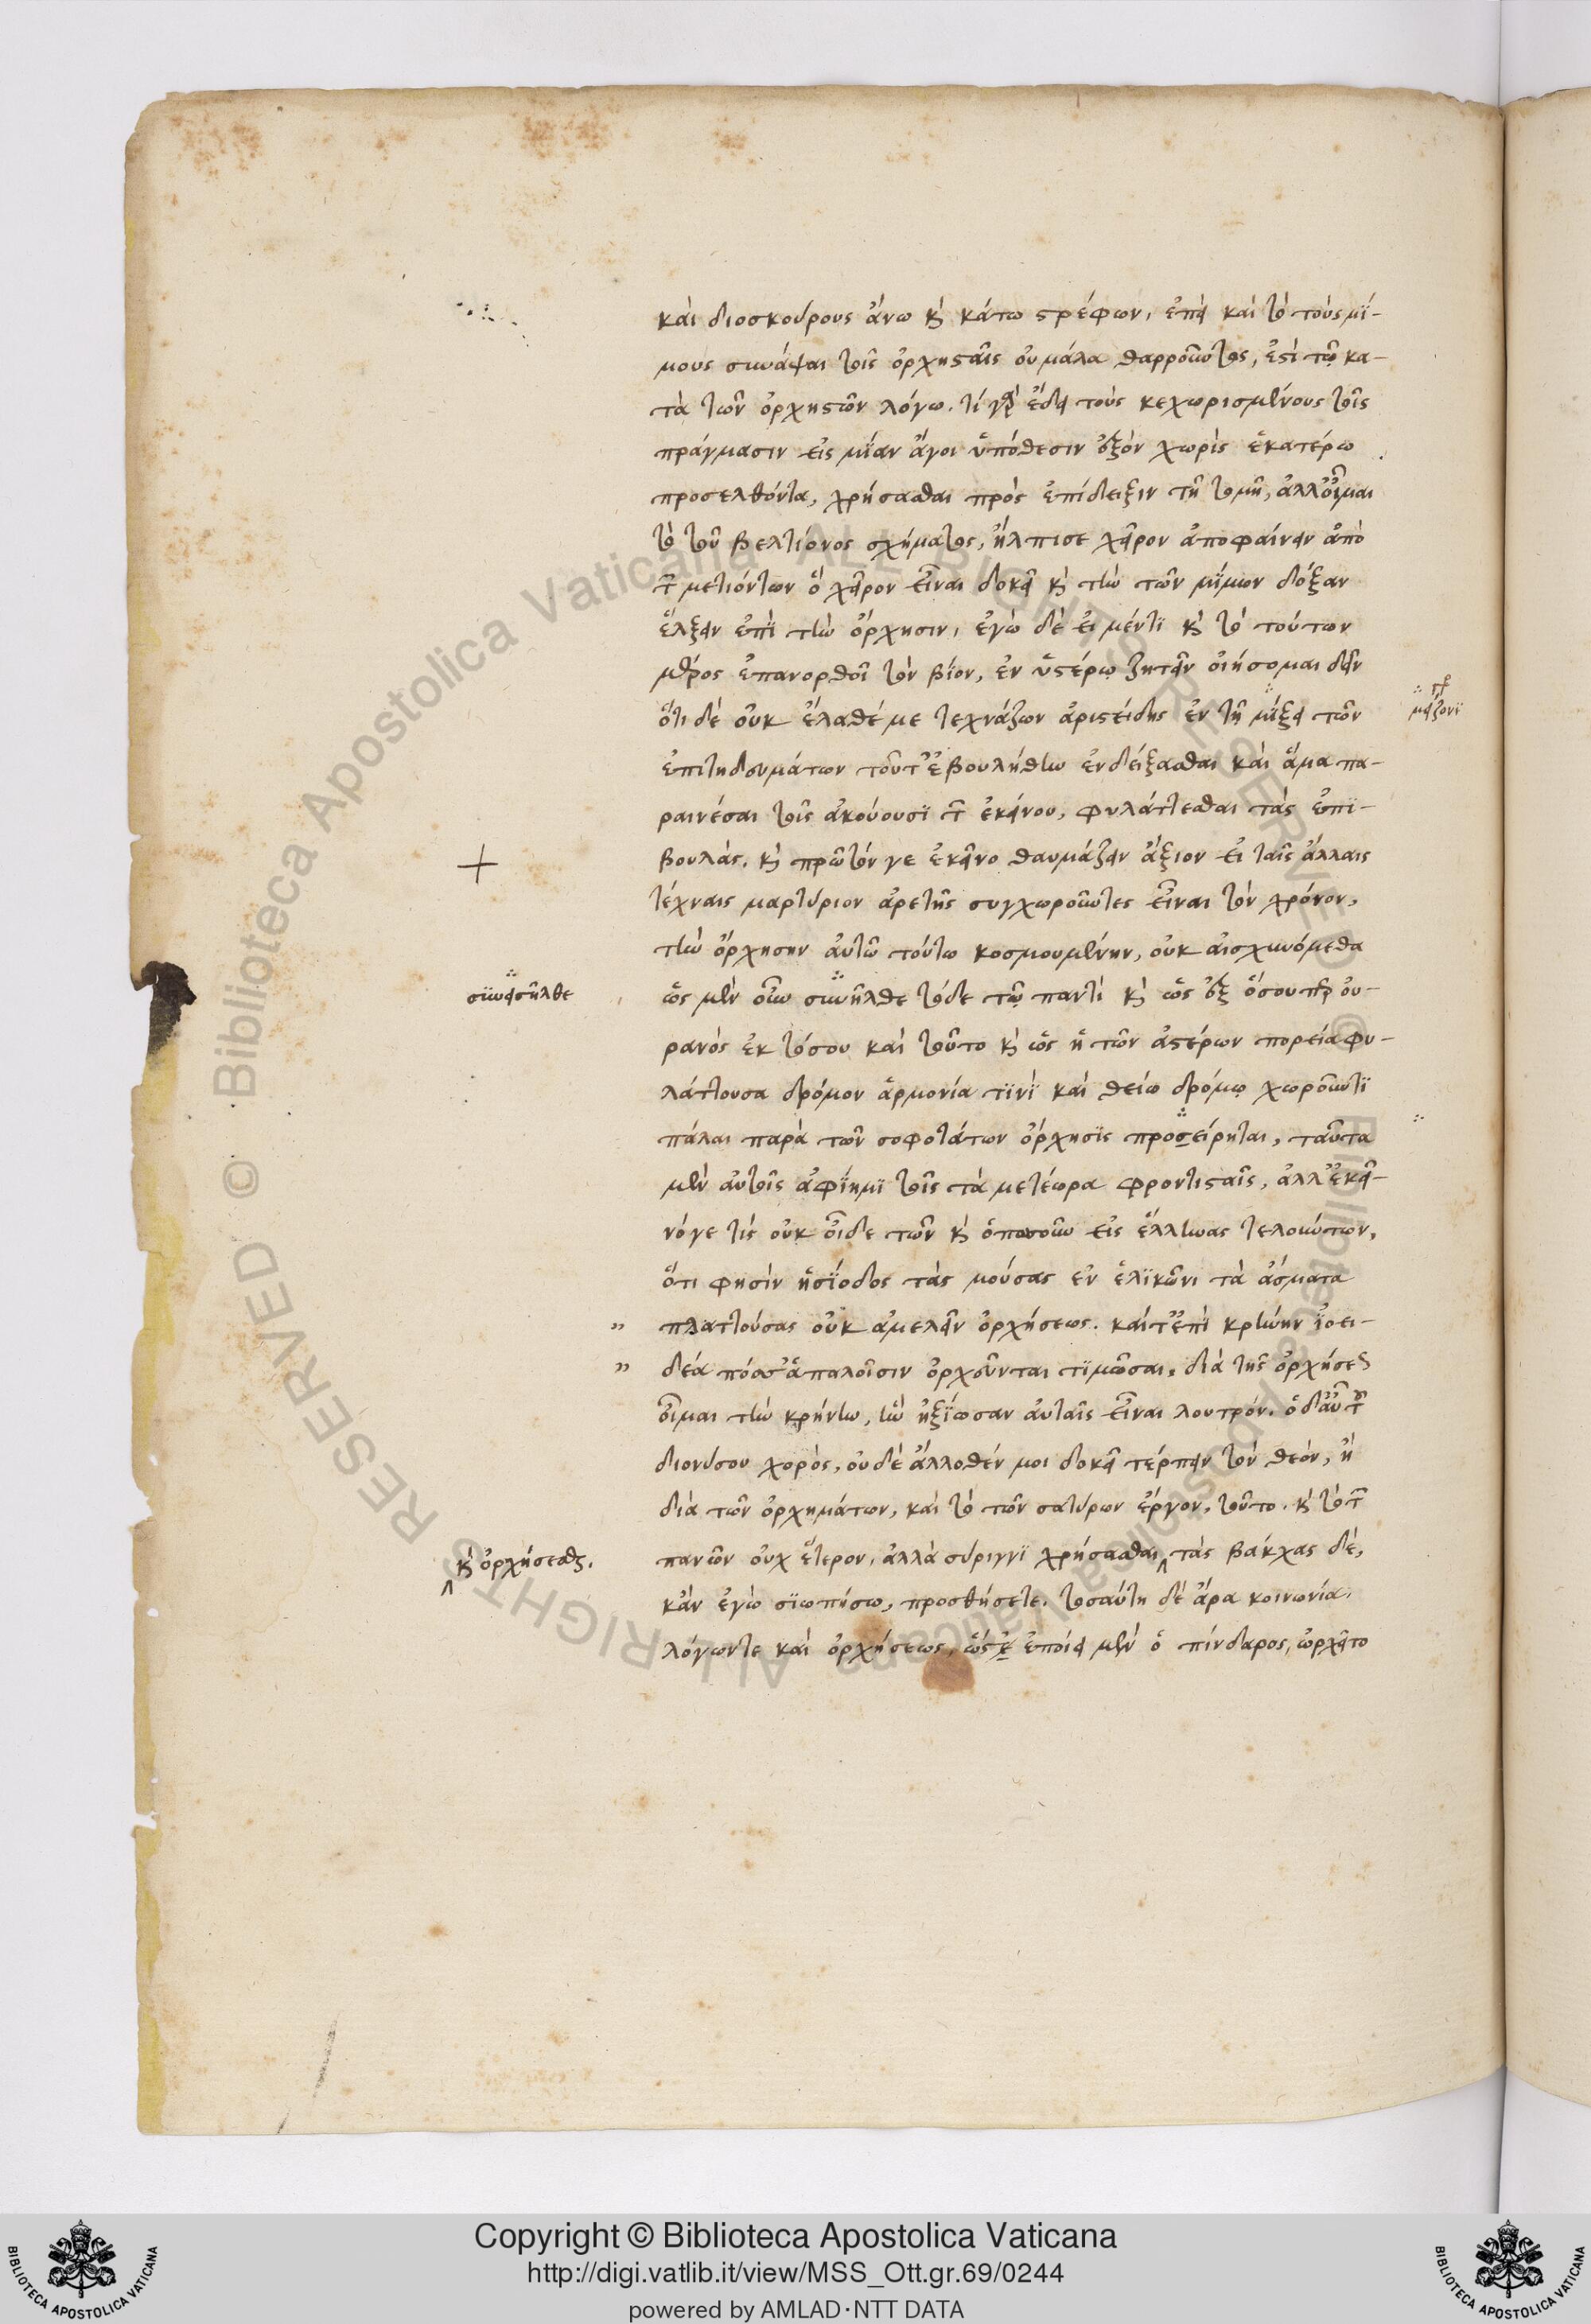 καὶ διοσκούρους ἄνω κὶ κάτω στρέφων, ἐπεὶ καὶ τὸ τοὺς μί-
μους συνάψαι τοῖς ὀρχησταῖς οὐ μάλα θαρροῦντος, ἐστὶ τῷ κα-
τὰ τῶν ὀρχηστῶν λόγω. τί γὰρ ἔδει τοὺς κεχωρισμένους τοῖς
πράγμασιν εἰς μίαν ἄγοι ὑπόθεσιν ἐξὸν χωρὶς ἑκατέρω
προσελθόντα, χρήσασθαι πρὸς ἐπίδειξιν τῆ τομῆ, ἀλλ' οἶμαι
τὸ τοῦ βελτίονος σχήματος, ἤλπισε χεῖρον ἀποφαίνειν ἀπὸ
τ μετιόντων ὃ χεῖρον εἶναι δοκεῖ κὶ τὴν τῶν μίμων δόξαν
ἕλξειν ἐπὶ τὴν ὄρχησιν, ἐγὼ δὲ εἰ μέντι κὶ τὸ τούτων
μέρος ἐπανορθοῖ τὸν βίον, ἐν ὑστέρῳ ζητεῖν οἰήσομαι δεῖν
ὅτι δὲ οὐκ ἔλαθέ με τεχνάζων ἀριστείδης ἐν τῆ μίξει τῶν
μείζονϊ
ἐπιτηδευμάτων τοῦτ' ἐβουλήθην ἐνδείξασθαι καὶ ἅμα πα-
ραινέσαι τοῖς ἀκούουσϊ τ ἐκείνου, φυλάττεσθαι τὰς ἐπϊ-
βουλάς. κὶ πρῶτόν γε ἐκεῖνο θαυμάζειν ἄξιον εἰ ταῖς ἄλλαις
τέχναις μαρτύριον ἀρετῆς συγχωροῦντες εἶναι τὸν χρόνον,
τὴν ὄρχησιν αὐτῶ τούτω κοσμουμένην, οὐκ αἰσχυνόμεθα
συνεισῆλθε
ὡς μὲν οὖν συνῆλθε τόδε τῷ παντὶ κὶ ὡς ἐξ ὅσουπερ οὐ-
ρανὸς ἐκ τόσου καὶ τοῦτο κὶ ὡς ἡ τῶν ἀστέρων πορεία φυ-
λάττουσα δρόμον ἁρμονία τϊνὶ καὶ θείω δρόμῳ χωροῦντϊ
πάλαι παρὰ τῶν σοφοτάτων ὄρχησϊς προσείρηται, ταῦτα
μὲν αὐτοῖς ἀφίημϊ τοῖς τὰ μετέωρα φροντισταῖς, ἀλλ' ἐκεῖ-
νόγε τίς οὐκ οἶδε τῶν κὶ ὁποσοῦν εἰς ἕλληνας τελούντων,
ὅτι φησὶν ἡσίοδος τὰς μούσας ἐν ἑλϊκῶνι τὰ ἄσματα
πλαττούσας οὐκ ἀμελεῖν ὀρχήσεως. καί τ' ἐπὶ κρήνην ἰοει-
δέα πόσσ' ἁπαλοῖσιν ὀρχοῦνται τϊμῶσαι, διὰ τῆς ὀρχήσεως
οἶμαι τὴν κρήνην, ἣν ἠξίωσαν αὐταῖς εἶναι λουτρόν. ὁ δ' αὖ τοῦ
διονύσου χορός, οὐδὲ ἄλλοθέν μοι δοκεῖ τέρπειν τὸν θεόν, ἢ
διὰ τῶν ὀρχημάτων, καὶ τὸ τῶν σατύρων ἔργον, τοῦτο. κὶ τὸ τ
κὶ ὀρχήσεσθαι.
πανῶν οὐχ ἕτερον, ἀλλὰ σύριγγϊ χρήσασθαι τὰς βάκχας δέ,
κἂν ἐγὼ σϊωπήσω, προσθήσετε. τοσαύτη δὲ ἄρα κοινωνία.
λόγωντε καὶ ὀρχήσεως, ὥστε ἐποίει μὲν ὁ πίνδαρος, ὠρχεῖτο
Copyright © Biblioteca Apostolica Vaticana
http://digi.vatlib.it/view/MSS_Ott.gr.69/0244
powered by AMLAD·NTT DATA
BIBLIOTECA APOSTOLICA VATICANA
BIBLIOTECA APOSTOLICA VATICANA